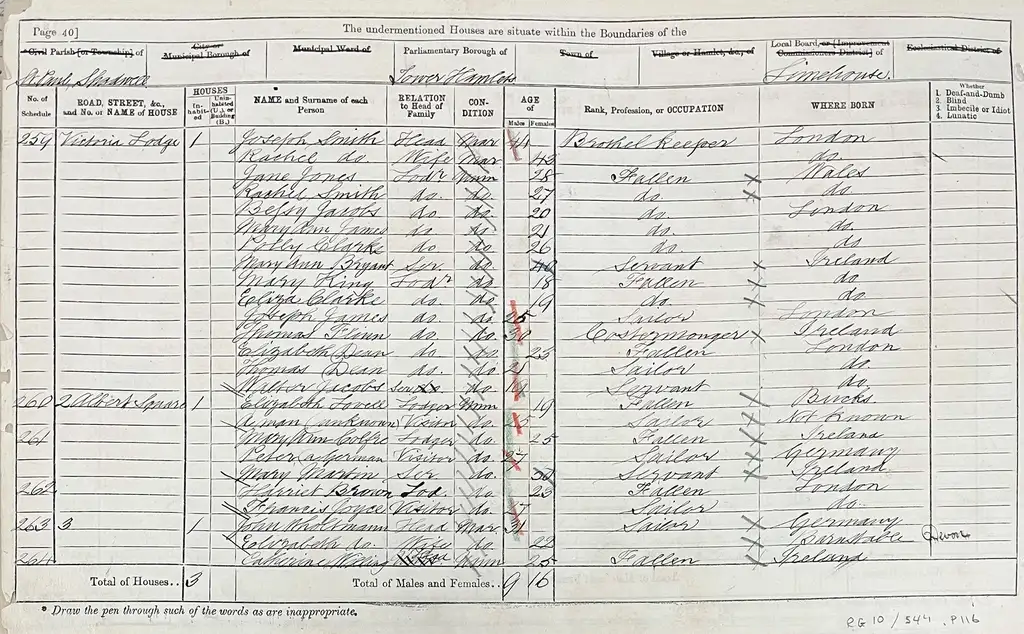 Page 40] The undermentioned Houses are situate within the Boundaries of the
*Civil Parish [or Township] of City or Municipal Borough of Municipal Ward of Parliamentary Borough of Town of Village or Hamlet, &c., of Local Board, or [Improvement Commissioners District] of Ecclesiastical District of
St Paul, Shadwell Tower Hamlets Limehouse
No. of Schedule ROAD, STREET, &c., and No. or NAME of HOUSE HOUSES In-habit-ed Unin-habited (U.), or Building (B.) NAME and Surname of each Person RELATION to Head of Family CON-DITION AGE of Males Females Rank, Profession, or OCCUPATION WHERE BORN Whether 1. Deaf-and-Dumb 2. Blind 3. Imbecile or Idiot 4. Lunatic
259 Victoria Lodge 1 Joseph Smith Head Mar 44 Brothel Keeper London
Rachel do. Wife Mar 43 do.
Jane Jones Lodr Unm 28 Fallen Wales
Rachel Smith do. do. 27 do. do
Betsy Jacobs do do. 20 do. London
Mary Ann James do do 21 do. do.
Polly Clarke do do. 26 do. do
Mary Ann Bryant Ser. do. 40 Servant Ireland
Mary King Lodr do. 18 Fallen do
Eliza Clarke do. do. 19 do. do
Joseph James do. do. 25 Sailor London
Thomas Flinn do. do. 30 Costermonger Ireland
Elizabeth Dean do. do. 23 Fallen London
Thomas Dean do. do. 21 Sailor do.
Walter Jacobs do. Servant do.
260 2 Albert Square 1 Elizabeth Lovell Lodger Unm 19 Fallen Bucks
A man (unknown) Visitor do. 25 Sailor Not Known
261 Mary Ann Lodger do. 25 Fallen Ireland
Peter Visitor do. 27 Sailor Germany
Mary Martin Ser do. Servant Ireland
262 Harriet Brown Lod. do. 23 Fallen London
Francis Joyce Visitor do. 27 Sailor do.
263 3 1 John Head Mar 31 Sailor Germany
Elizabeth do. Wife do. 22 Barnstable Devon
264 Catherine Unm 25 Fallen Ireland
Total of Houses.. 3 Total of Males and Females.. 9 16
* Draw the pen through such of the words as are inappropriate.
RG 10 / 544 . P116